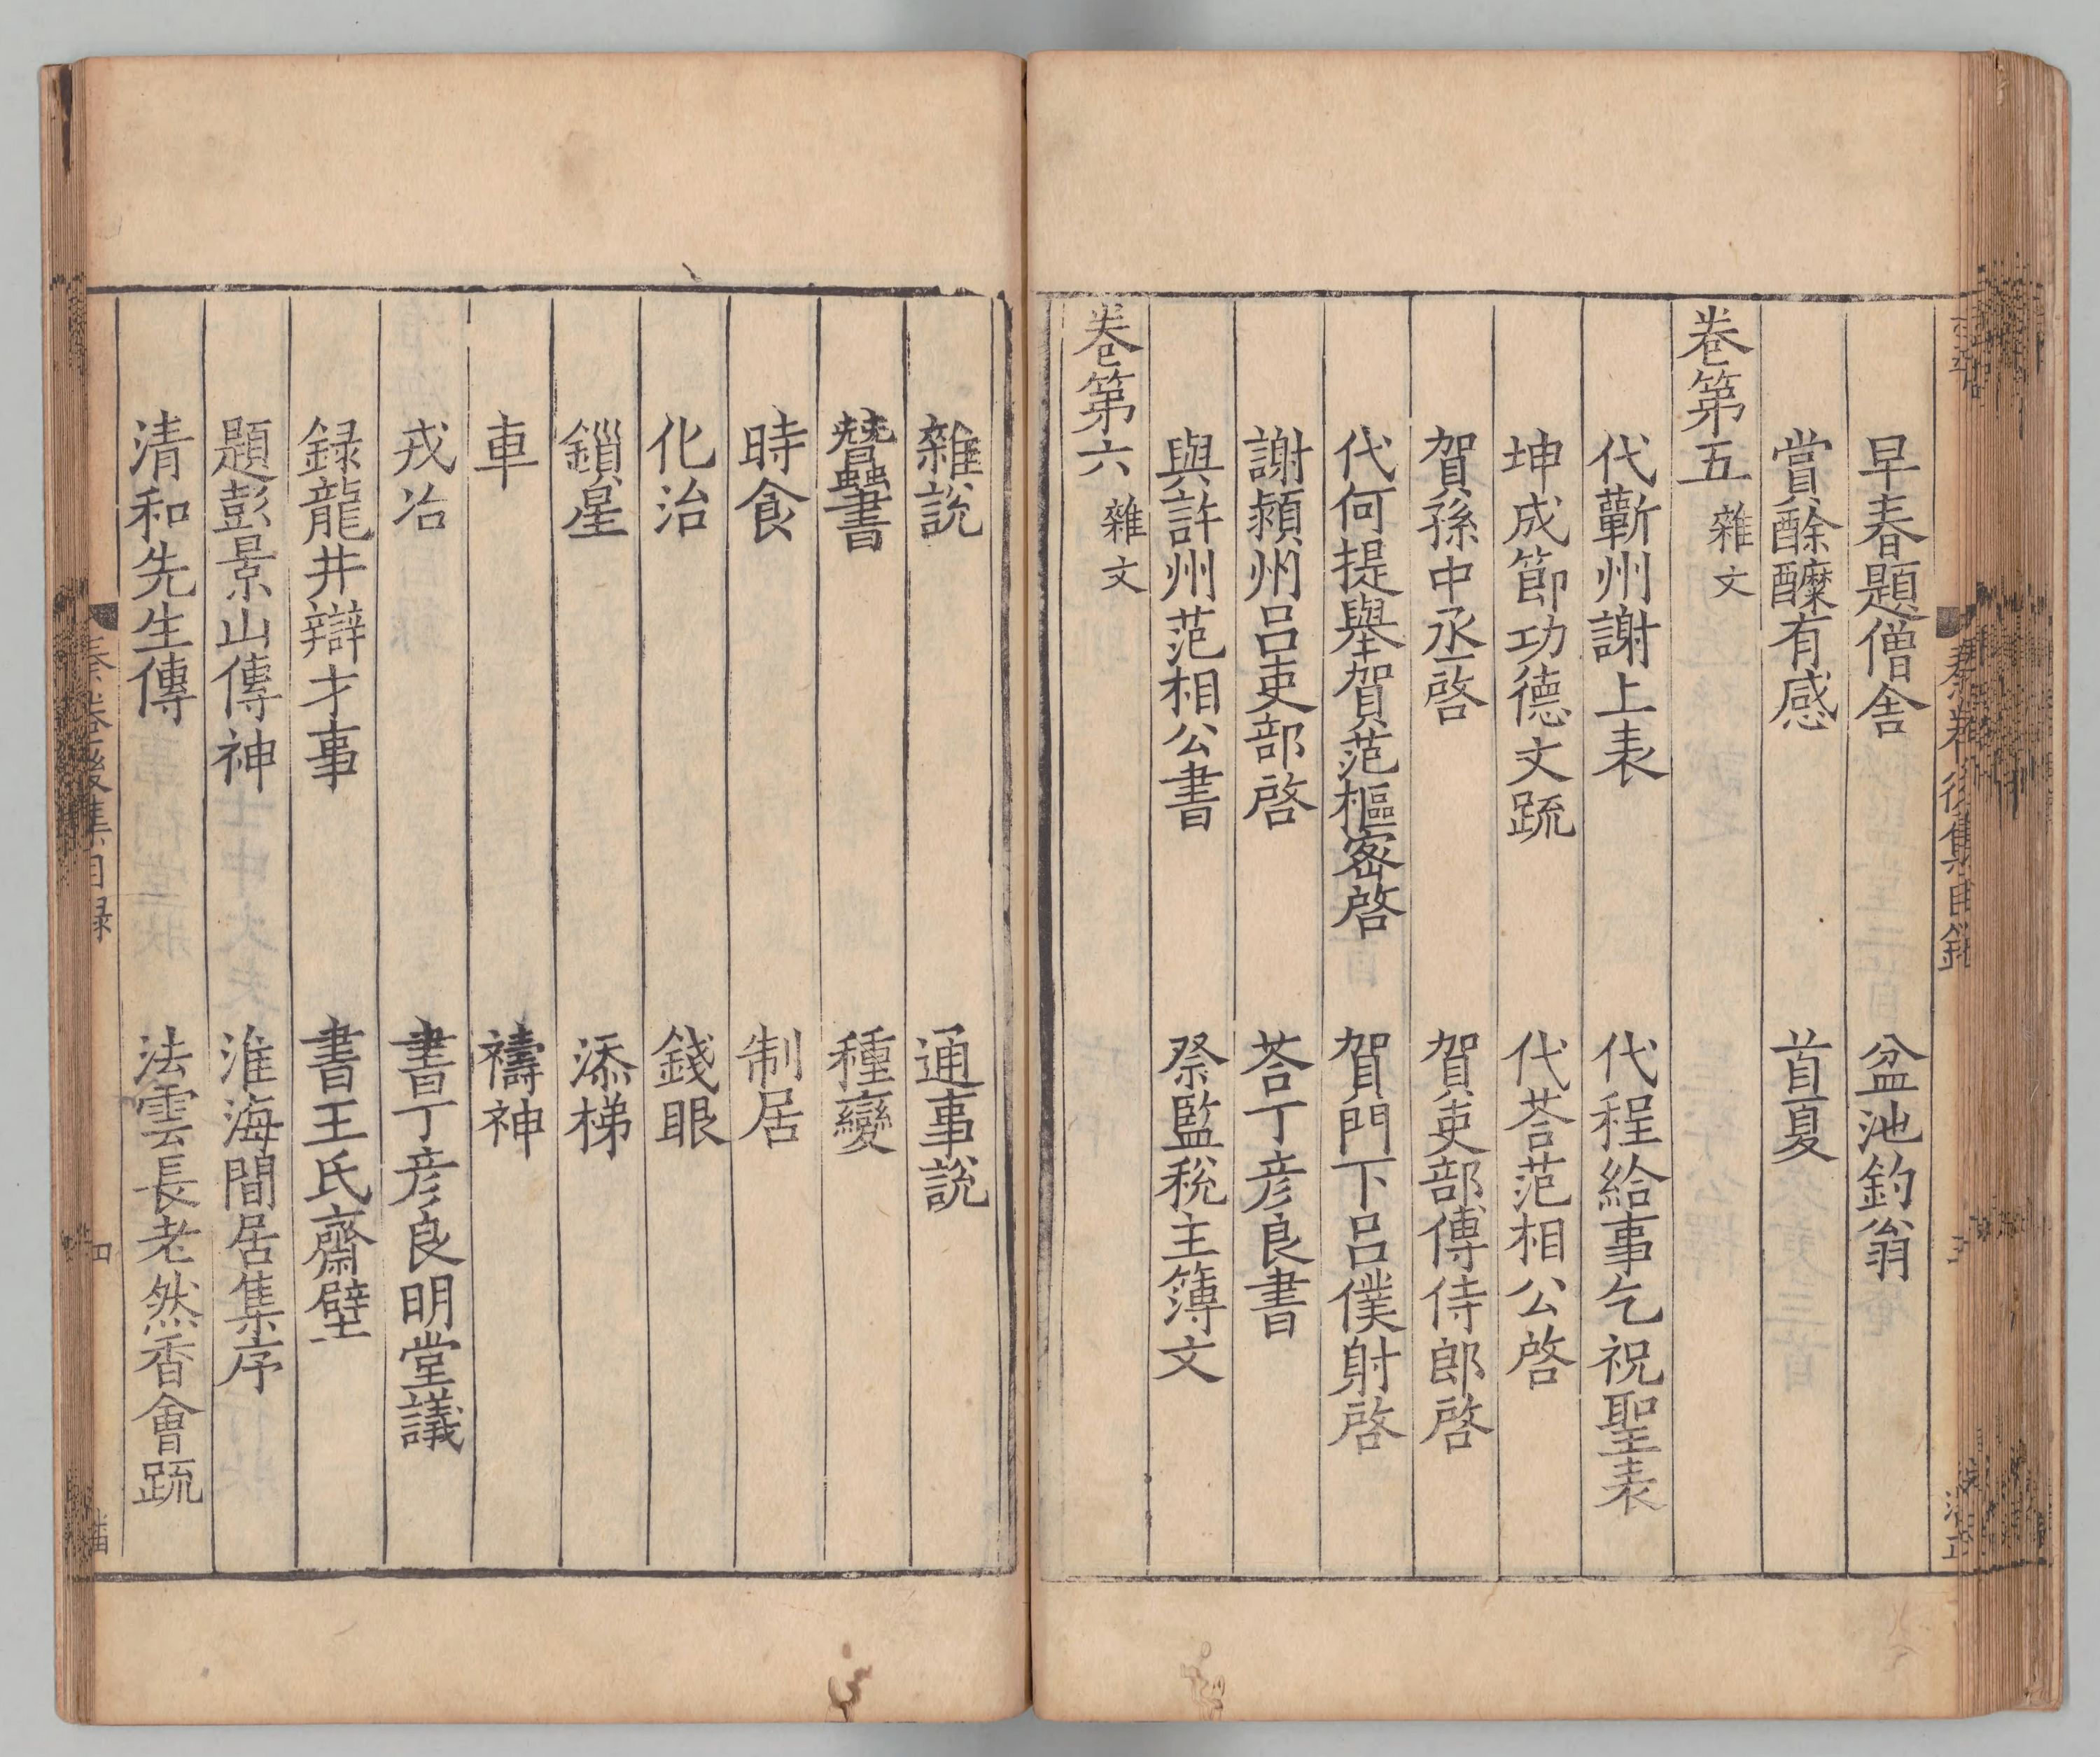 早春題僧舍　盆池釣翁
賞酴醾有感　首夏
卷第五　雜文
代蘄州謝上表　代程給事乞祝聖表
坤成節功德文疏　代荅范相公啓
賀孫中丞啓　賀吏部傅侍郎啓
代何提舉賀范樞密啓　賀門下呂僕射啓
謝潁州呂吏部啓　荅丁彦良書
與許州范相公書　祭監税主簿文
卷第六　雜文
雜説　通事説
蠶書　種變
時食　制居
化治　錢眼
鎻星　添梯
車　禱神
戎治　書丁彦良明堂議
録龍井辯才事　書王氏齋壁
題彭景山傳神　淮海閒居集序
清和先生傳　法雲長老然香會疏
秦卷後集目録
四